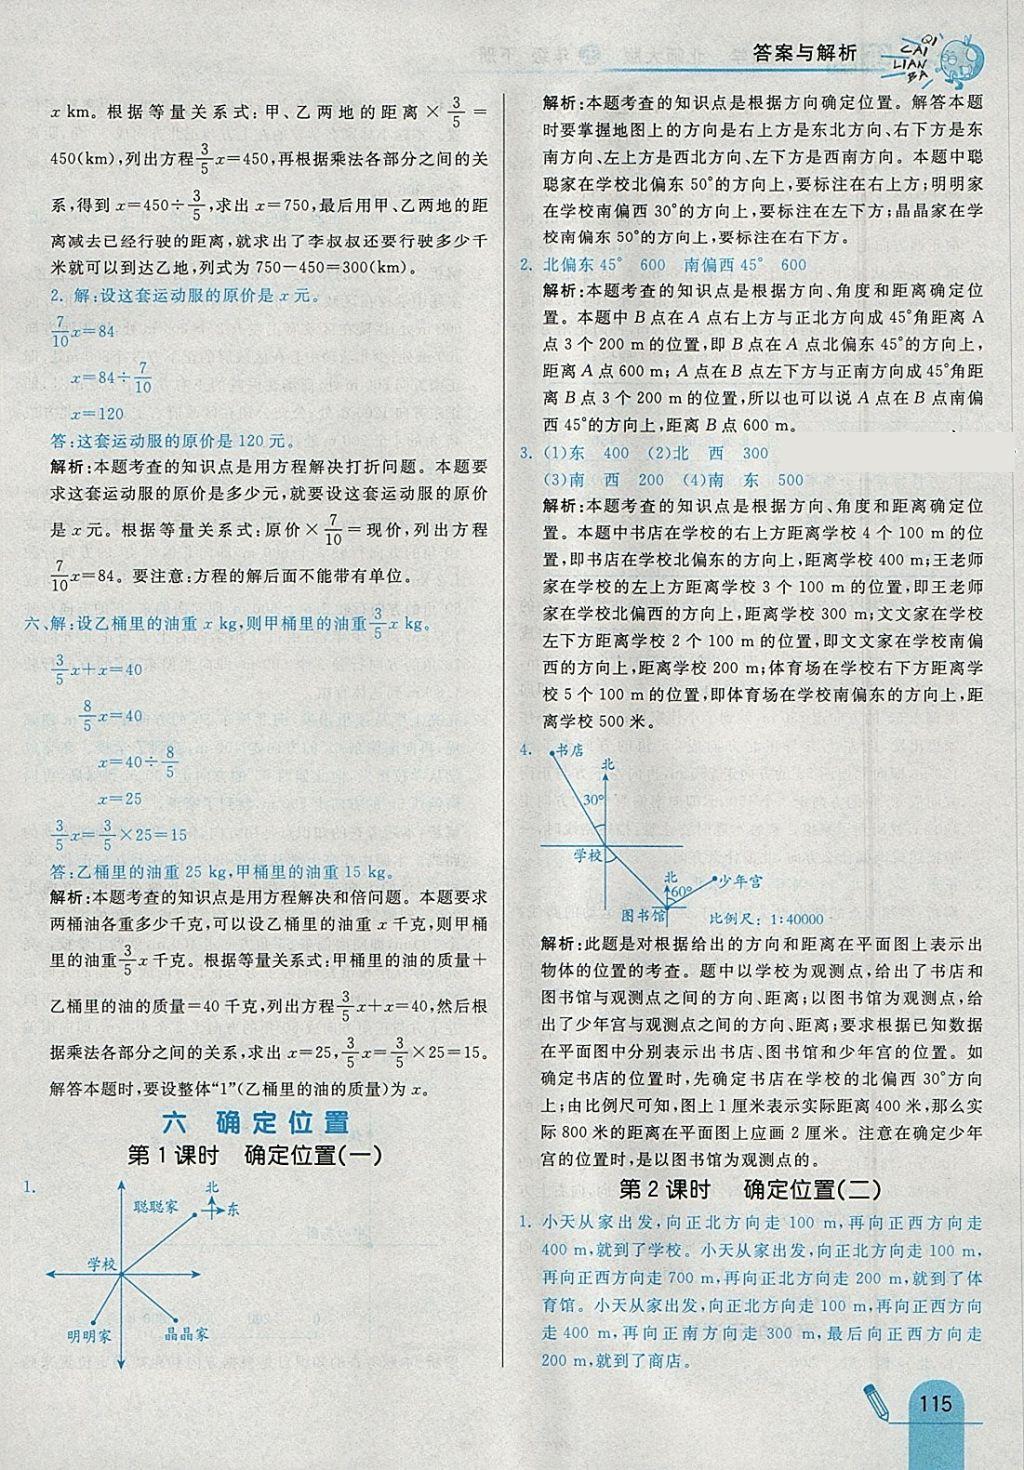 答案与解析
QI
CAI
LIAN
BA
x km。根据等量关系式:甲、乙两地的距离×3/5=
450(km),列出方程3/5x=450,再根据乘法各部分之间的关
系,得到x=450÷3/5,求出x=750,最后用甲、乙两地的距
离减去已经行驶的距离,就求出了李叔叔还要行驶多少千
米就可以到达乙地,列式为750-450=300(km)。
2. 解:设这套运动服的原价是x元。
7/10x=84
x=84÷7/10
x=120
答:这套运动服的原价是120元。
解析:本题考查的知识点是用方程解决打折问题。本题要
求这套运动服的原价是多少元,就要设这套运动服的原价
是x元。根据等量关系式:原价×7/10=现价,列出方程
7/10x=84。要注意:方程的解后面不能带有单位。
六、解:设乙桶里的油重x kg,则甲桶里的油重3/5x kg。
3/5x+x=40
8/5x=40
x=40÷8/5
x=25
3/5x=3/5×25=15
答:乙桶里的油重25 kg,甲桶里的油重15 kg。
解析:本题考查的知识点是用方程解决和倍问题。本题要求
两桶油各重多少千克,可以设乙桶里的油重x千克,则甲桶
里的油重3/5x千克。根据等量关系式:甲桶里的油的质量+
乙桶里的油的质量=40千克,列出方程3/5x+x=40,然后根
据乘法各部分之间的关系,求出x=25,3/5x=3/5×25=15。
解答本题时,要设整体“1”(乙桶里的油的质量)为x。
六 确定位置
第1课时 确定位置(一)
1.
聪聪家
北
东
学校
明明家
晶晶家
解析:本题考查的知识点是根据方向确定位置。解答本题
时要掌握地图上的方向是右上方是东北方向、右下方是东
南方向、左上方是西北方向、左下方是西南方向。本题中聪
聪家在学校北偏东50°的方向上,要标注在右上方;明明家
在学校南偏西30°的方向上,要标注在左下方;晶晶家在学
校南偏东50°的方向上,要标注在右下方。
2. 北偏东45° 600 南偏西45° 600
解析:本题考查的知识点是根据方向、角度和距离确定位
置。本题中B点在A点右上方与正北方向成45°角距离A
点3个200 m的位置,即B点在A点北偏东45°的方向上,
距离A点600 m;A点在B点左下方与正南方向成45°角距
离B点3个200 m的位置,所以也可以说A点在B点南偏
西45°的方向上,距离B点600 m。
3. (1)东 400 (2)北 西 300
(3)南 西 200 (4)南 东 500
解析:本题考查的知识点是根据方向、角度和距离确定位
置。本题中书店在学校的右上方距离学校4个100 m的位
置,即书店在学校北偏东的方向上,距离学校400 m;王老师
家在学校的左上方距离学校3个100 m的位置,即王老师
家在学校北偏西的方向上,距离学校300 m;文文家在学校
左下方距离学校2个100 m的位置,即文文家在学校南偏
西的方向上,距离学校200 m;体育场在学校右下方距离学
校5个100 m的位置,即体育场在学校南偏东的方向上,距
离学校500米。
4.
书店
北
30°
学校
北
60°
少年宫
图书馆
比例尺:1:40000
解析:此题是对根据给出的方向和距离在平面图上表示出
物体的位置的考查。题中以学校为观测点,给出了书店和
图书馆与观测点之间的方向、距离;以图书馆为观测点,给
出了少年宫与观测点之间的方向、距离;要求根据已知数据
在平面图中分别表示出书店、图书馆和少年宫的位置。如
确定书店的位置时,先确定书店在学校的北偏西30°方向
上;由比例尺可知,图上1厘米表示实际距离400米,那么实
际800米的距离在平面图上应画2厘米。注意在确定少年
宫的位置时,是以图书馆为观测点的。
第2课时 确定位置(二)
1. 小天从家出发,向正北方向走100 m,再向正西方向走
400 m,就到了学校。小天从家出发,向正北方向走100 m,
再向正西方向走700 m,再向正北方向走200 m,就到了体
育馆。小天从家出发,向正北方向走100 m,再向正西方向
走400 m,再向正南方向走300 m,最后向正西方向走
200 m,就到了商店。
115